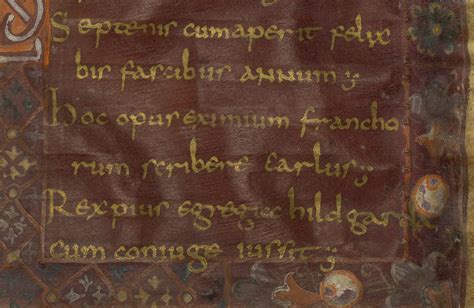 Septenis cum aperit felix
bis fascibus annum;
Hoc opus eximium francho
rum scribere Carlus;
Rex pius egregia hildgarda
cum coniuge iussit;